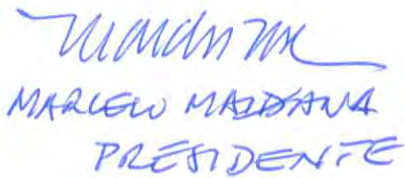 MARCELO MALDANA
PRESIDENTE